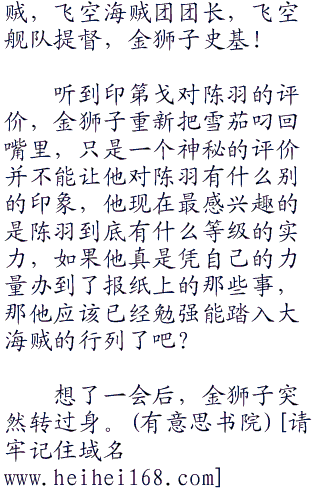 贼，飞空海贼团团长，飞空
舰队提督，金狮子史基！
听到印第戈对陈羽的评
价，金狮子重新把雪茄叼回
嘴里，只是一个神秘的评价
并不能让他对陈羽有什么别
的印象，他现在最感兴趣的
是陈羽到底有什么等级的实
力，如果他真是凭自己的力
量办到了报纸上的那些事，
那他应该已经勉强能踏入大
海贼的行列了吧？
想了一会后，金狮子突
然转过身。(有意思书院)[请
牢记住域名
www.heihei168.com]